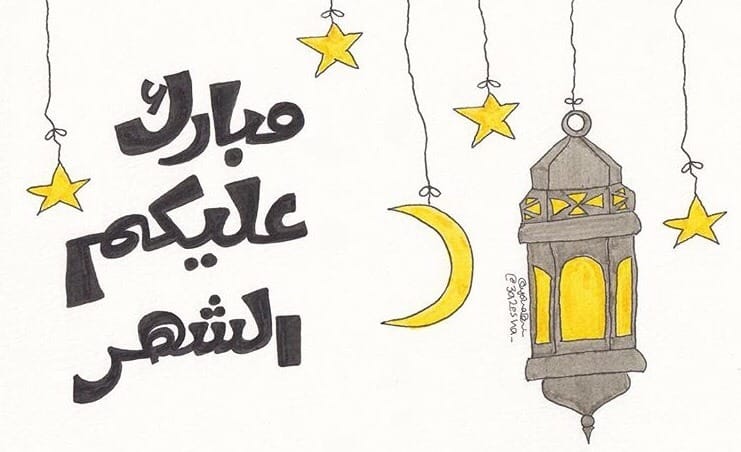 مبارك
عليكم
الشهر
@3a2esha_